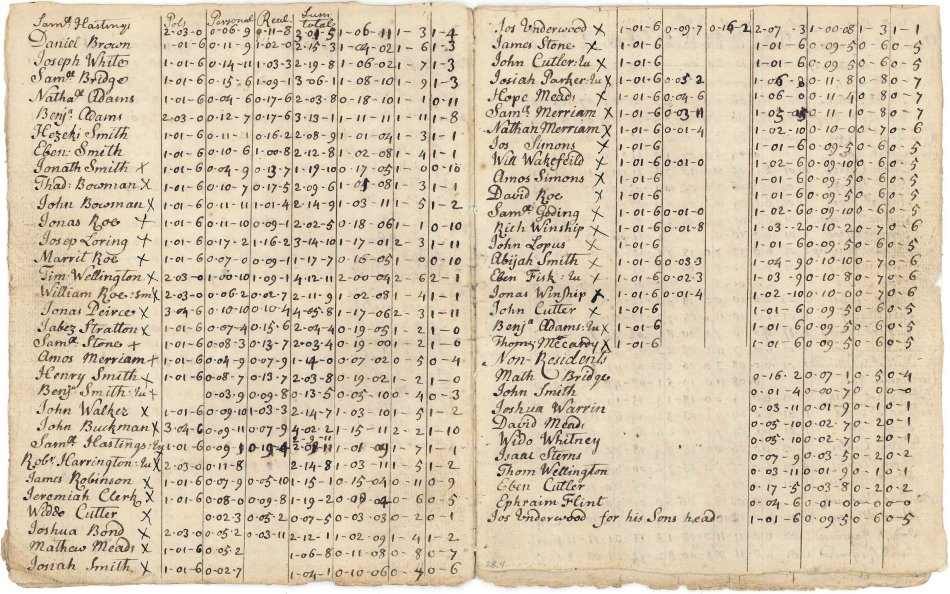 Pols Personal Real Sum total
Sam.ll Hastings 2-03-0 0-06-9 0-11-8 3-01-5 1-06-11 1-3 1-4
Daniel Brown 1-01-6 0-11-9 1-02-0 2-15-3 1-04-02 1-6 1-3
Joseph White 1-01-6 0-14-11 1-03-3 2-19-8 1-06-02 1-7 1-3
Sam.ll Bridge 1-01-6 0-15-6 1-09-1 3-06-1 1-08-10 1-9 1-3
Natha.ll Adams 1-01-6 0-04-6 0-17-6 2-03-8 0-18-10 1-1 0-11
Benj.a Adams 2-03-0 0-12-7 0-17-6 3-13-1 1-11-11 1-11 1-8
Hezeki Smith 1-01-6 0-11-1 0-16-2 2-08-9 1-01-04 1-3 1-1
Eben Smith 1-01-6 0-10-6 1-00-8 2-12-8 1-02-08 1-4 1-1
Jonath Smith x 1-01-6 0-04-9 0-13-7 1-19-10 0-17-05 1-0 0-10
Thad Bowman x 1-01-6 0-10-7 0-17-5 2-09-6 1-01-08 1-3 1-1
John Bowman x 1-01-6 0-11-11 1-01-4 2-14-9 1-03-11 1-5 1-2
Jonas Roe + 1-01-6 0-10-11 0-09-1 2-02-5 0-18-06 1-1 0-10
Josep Loring + 1-01-6 0-17-2 1-16-2 3-14-10 1-17-01 2-3 1-11
Marrit Roe + 1-01-6 0-07-0 0-09-1 1-17-7 0-16-05 1-0 0-10
Tim Wellington x 2-03-0 1-00-10 1-09-1 4-12-11 2-00-04 2-6 2-1
William Roe Smi x 2-03-0 0-06-2 0-02-7 2-11-9 1-02-08 1-4 1-1
Jonas Peirce x 3-04-6 0-10-10 0-10-4 4-05-8 1-17-06 2-3 1-11
Jabez Stratton x 1-01-6 0-07-4 0-15-6 2-04-4 0-19-05 1-2 1-0
Sam.ll Stone + 1-01-6 0-08-3 0-13-7 2-03-4 0-19-00 1-2 1-0
Amos Merriam + 1-01-6 0-04-9 0-07-9 1-14-0 0-07-02 0-5 0-4
Henry Smith x 1-01-6 0-08-7 0-13-7 2-03-8 0-19-02 1-2 1-0
Benj.a Smith Ju + 0-03-9 0-09-8 0-13-5 0-05-10 0-4 0-3
John Walker x 1-01-6 0-09-10 1-03-3 2-14-7 1-03-10 1-5 1-2
John Buckman x 3-04-6 0-09-11 0-07-9 4-02-2 1-15-11 2-2 1-10
Sam.ll Hastings 1-01-6 0-09-1 0-19-4 1-01-09 1-1
Rob.t Harrington Ju x 2-03-0 0-11-8 2-14-8 1-03-11 1-5 1-2
James Robinson x 1-01-6 0-07-9 0-05-10 1-15-1 0-15-04 0-11 0-9
Jeremiah Clerk x 1-01-6 0-08-0 0-09-8 1-19-2 0-6 0-5
Widdo Cutler x 0-02-3 0-05-2 0-07-5 0-03-03 0-2 0-1
Joshua Bond x 2-03-0 0-05-2 0-03-11 2-12-1 1-02-09 1-4 1-2
Mathew Meads x 1-01-6 0-05-2 1-06-8 0-11-08 0-8 0-7
Josiah Smith x 1-01-6 0-02-7 1-04-1 0-10-06 0-7 0-6
Jos Underwood x 1-01-6 0-09-7 0-16-2 2-07-3 1-00-08 1-3 1-1
James Stone x 1-01-6 0-09-5 0-6 0-5
John Cutler Ju x 1-01-6 0-09-5 0-6 0-5
Josiah Parker Ju x 1-01-6 0-05-2 1-06-8 0-11-8 0-8 0-7
Hope Mead x 1-01-6 0-04-6 1-06-0 0-11-4 0-8 0-7
Sam.ll Merriam x 1-01-6 0-03-11 1-05-5 0-11-1 0-8 0-7
Nathan Merriam x 1-01-6 0-01-4 1-02-10 0-10-0 0-7 0-6
Jos Simons x 1-01-6 0-09-5 0-6 0-5
Will Wakefeild x 1-01-6 0-01-0 1-02-6 0-09-10 0-6 0-5
Amos Simons x 1-01-6 0-09-5 0-6 0-5
David Roe x 1-01-6 0-09-5 0-6 0-5
Sam.ll Goding x 1-01-6 0-01-0 1-02-6 0-09-10 0-6 0-5
Rich Winship x 1-01-6 0-01-8 1-03-2 0-10-2 0-7 0-6
John Lopus x 1-01-6 0-09-5 0-6 0-5
Abijah Smith x 1-01-6 0-03-3 1-04-9 0-10-10 0-7 0-6
Eben Fisk Ju x 1-01-6 0-02-3 1-03-9 0-10-8 0-7 0-6
Jonas Winship x 1-01-6 0-01-4 1-02-10 0-10-0 0-7 0-6
John Cutter x 1-01-6 1-01-6 0-09-5 0-6 0-5
Benj.a Adams Ju x 1-01-6 1-01-6 0-09-5 0-6 0-5
Thom.s McCeardy x 1-01-6 1-01-6 0-09-5 0-6 0-5
Non-Residents
Math Bridge 0-16-2 0-07-1 0-5 0-4
John Smith 0-01-4 0-00-7 0-0 0-0
Joshua Warrin 0-03-11 0-01-9 0-1 0-1
David Mead 0-05-10 0-02-7 0-2 0-1
Wido Whitney 0-05-10 0-02-7 0-2 0-1
Isaac Sterns 0-07-9 0-03-5 0-2 0-2
Thom Wellington 0-03-11 0-01-9 0-1 0-1
Eben Cutler 0-17-5 0-03-8 0-2 0-2
Ephraim Flint 0-04-6 0-01-0 0-0 0-0
Jos Underwood for his Sons head 1-01-6 0-09-5 0-6 0-5